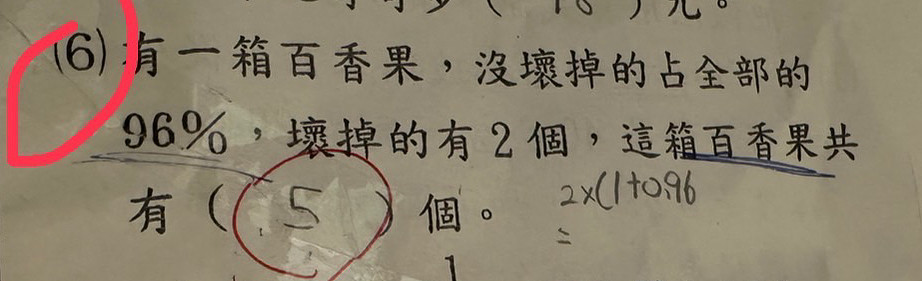 (6)有一箱百香果，沒壞掉的占全部的
96%，壞掉的有2個，這箱百香果共
有（ 5 ）個。 2×(1+0.96
=